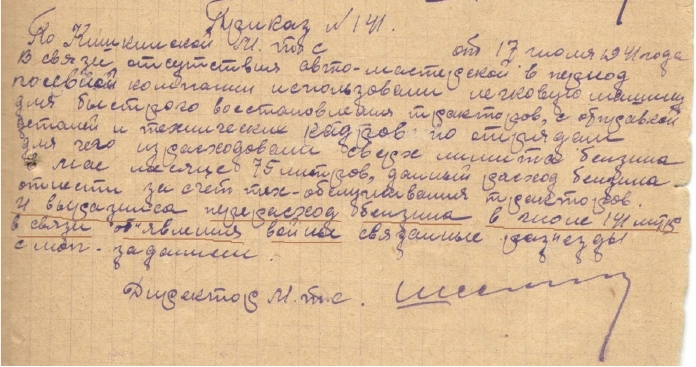 Приказ №141.
По Кишкинской М.т.с от 17 июля 1941 года
В связи отсутствия авто-мастерской в период
посевной компании использовали легковую машину
для быстрого восстановления тракторов, с отправкой
деталей и технических кадров по отрядам
для чего израсходовали сверх лимита бензина
в мае месяце 75 литров, данный расход бензина
отнести за счет тех-обслуживания тракторов.
И выразился перерасход бензина в июле 141 литр
в связи об"явления войны связанные разъезды
с моп. заданием.
Директор М.т.с.